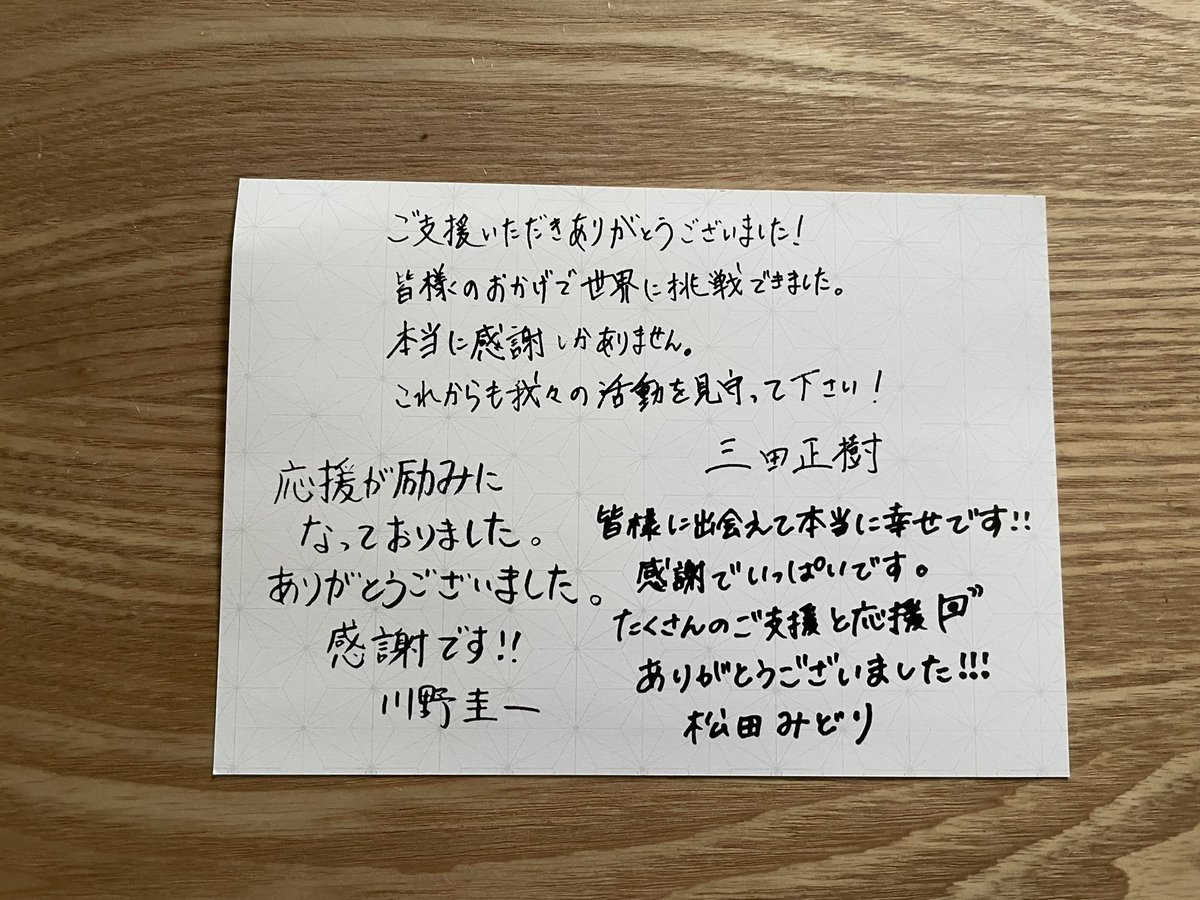 ご支援いただきありがとうございました!
皆様のおかげで世界に挑戦できました。
本当に感謝しかありません。
これからも我々の活動を見守って下さい!
三田正樹
応援が励みに
なっておりました。
ありがとうございました。
感謝です!!
川野圭一
皆様に出会えて本当に幸せです!!
感謝でいっぱいです。
たくさんのご支援と応援
ありがとうございました!!!
松田みどり